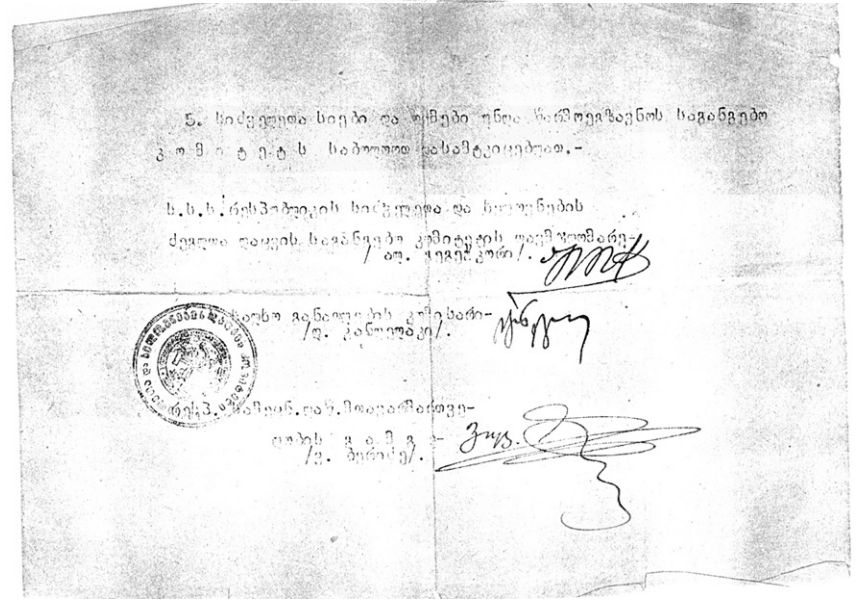 5. სიძველეთა სიები და ოქმები უნდა წარმოეგზავნოს საგანგებო
კ ო მ ი ტ ე ტ ს საბოლოოთ დასამტკიცებლათ.-
ს.ს.ს. რესპობლიკის სიძველეთა და ხელოვნების
ძეგლთა დაცვის საგანგებო კომიტეტის თავმჯდომარე-
/ალ. გეგეჭკორი/.
სახალხო განათლების კომისარი-
/დ. კანდელაკი/.
რესპ. სამეცნ. დაწ. მთავარმართვე-
ლობის გ ა მ გ ე-
/ვ. ბერიძე/.